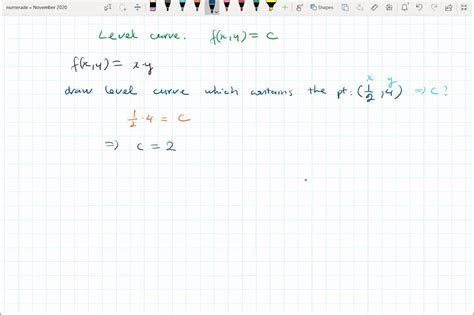 numerade • November 2020
Shapes
Level curve: f(x,y) = C
f(x,y) = x·y
x y
draw level curve which contains the pt: (1/2, 4) ⇒ C?
1/2 · 4 = C
⇒ C = 2